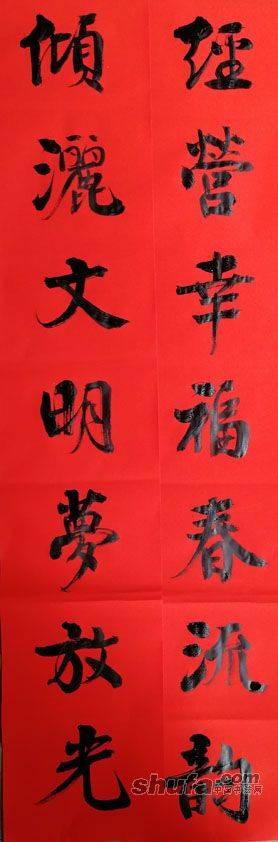 經營幸福春流韵
傾灑文明夢放光
shufa.com
中国书法网